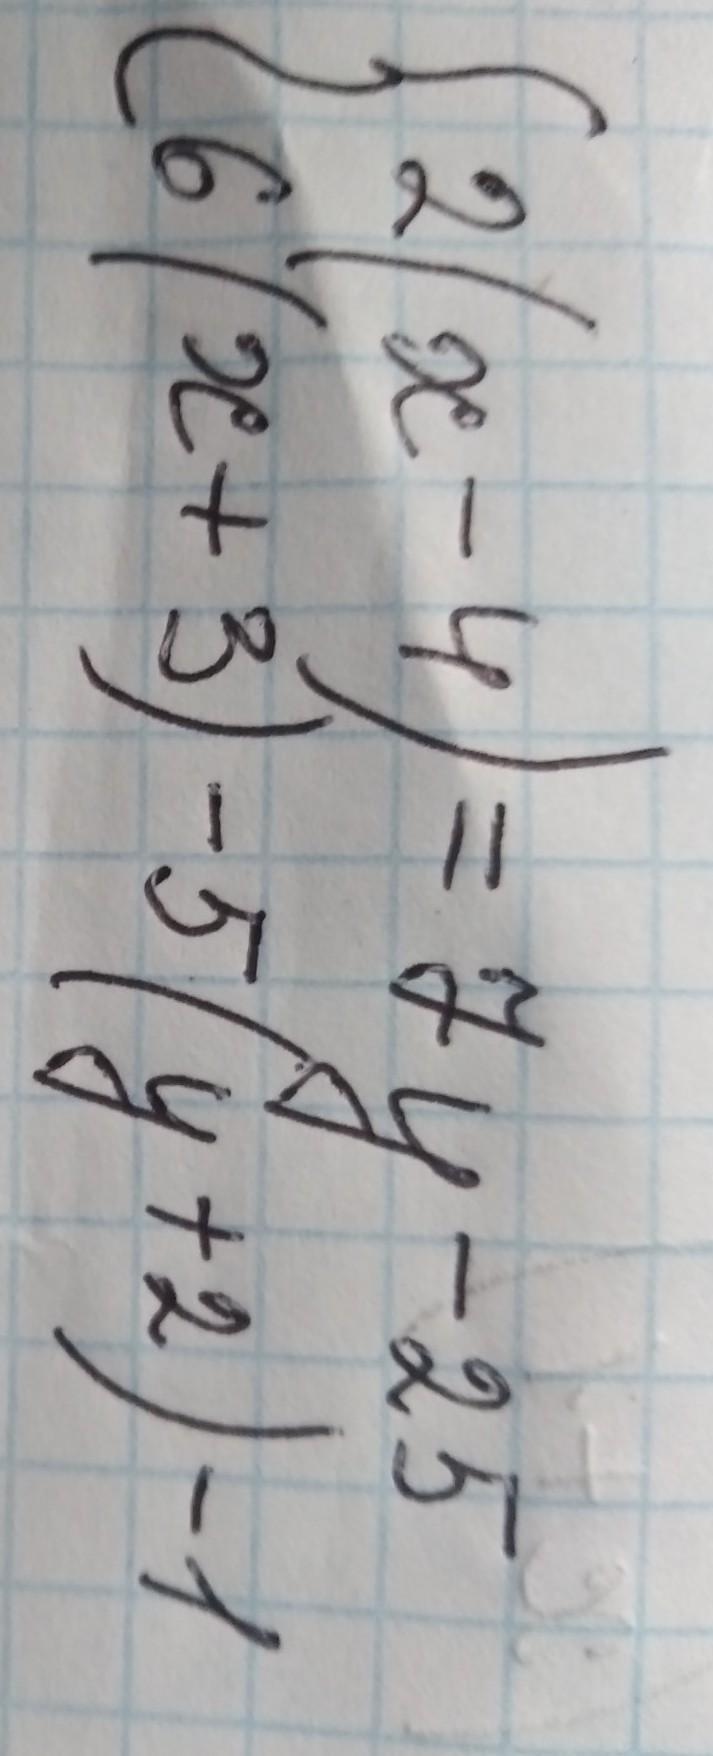 { 2(x-4) = 7y - 25
6(x+3) - 5(y+2) - 1